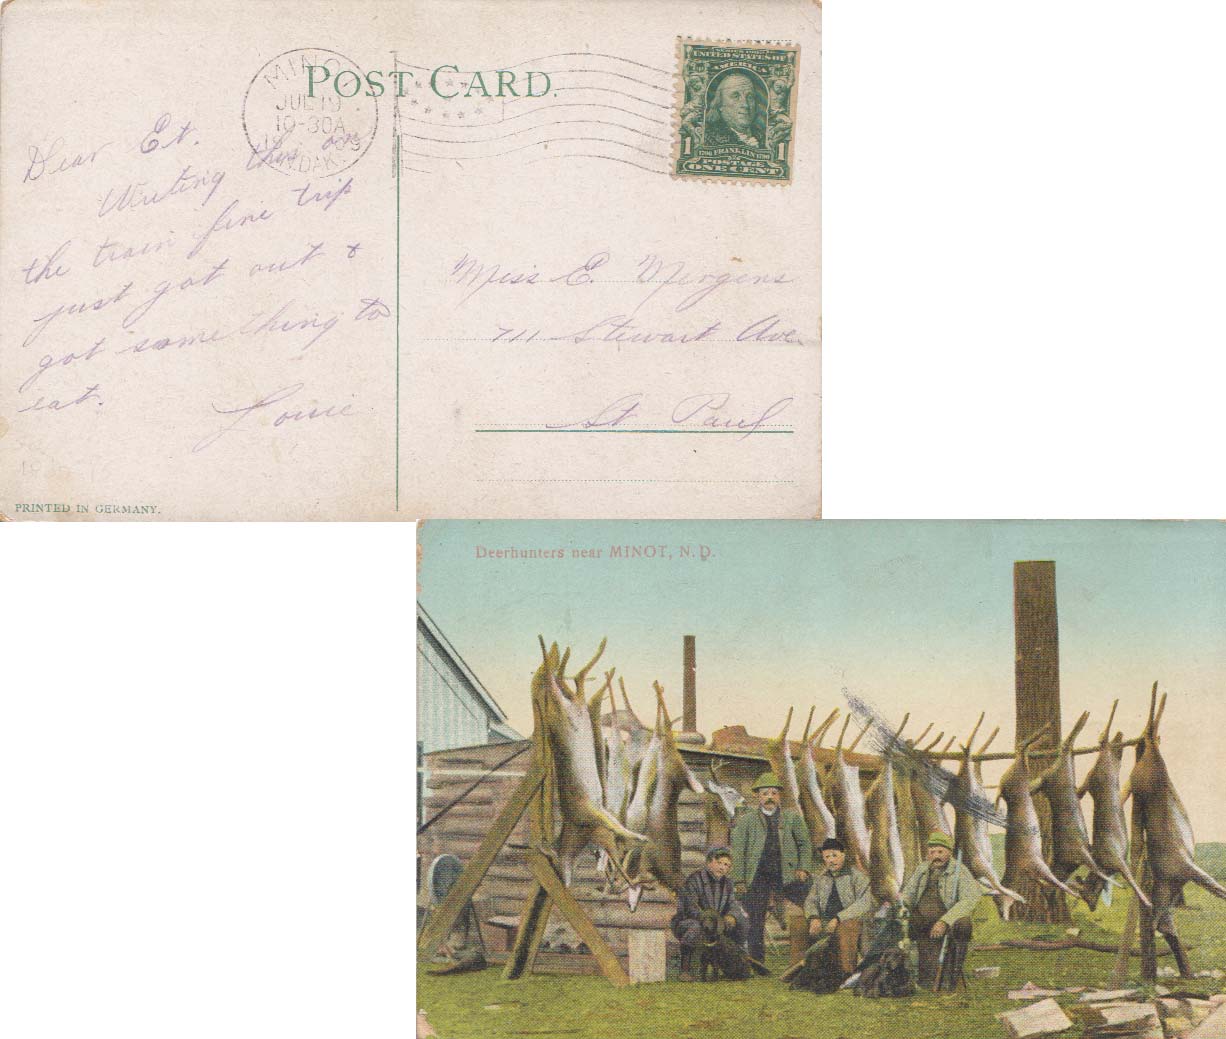 POST CARD.
MINO
JUL 19
10-30A
N.DAK.
SERIES 1902
UNITED STATES OF
AMERICA
1706 FRANKLIN 1790
1 1
POSTAGE
ONE CENT
Dear Et.
Writing this on
the train fine trip
just got out &
got something to
eat.
Louie
Miss E. Mergens
711 Stewart Ave.
St Paul
PRINTED IN GERMANY.
Deerhunters near MINOT, N. D.